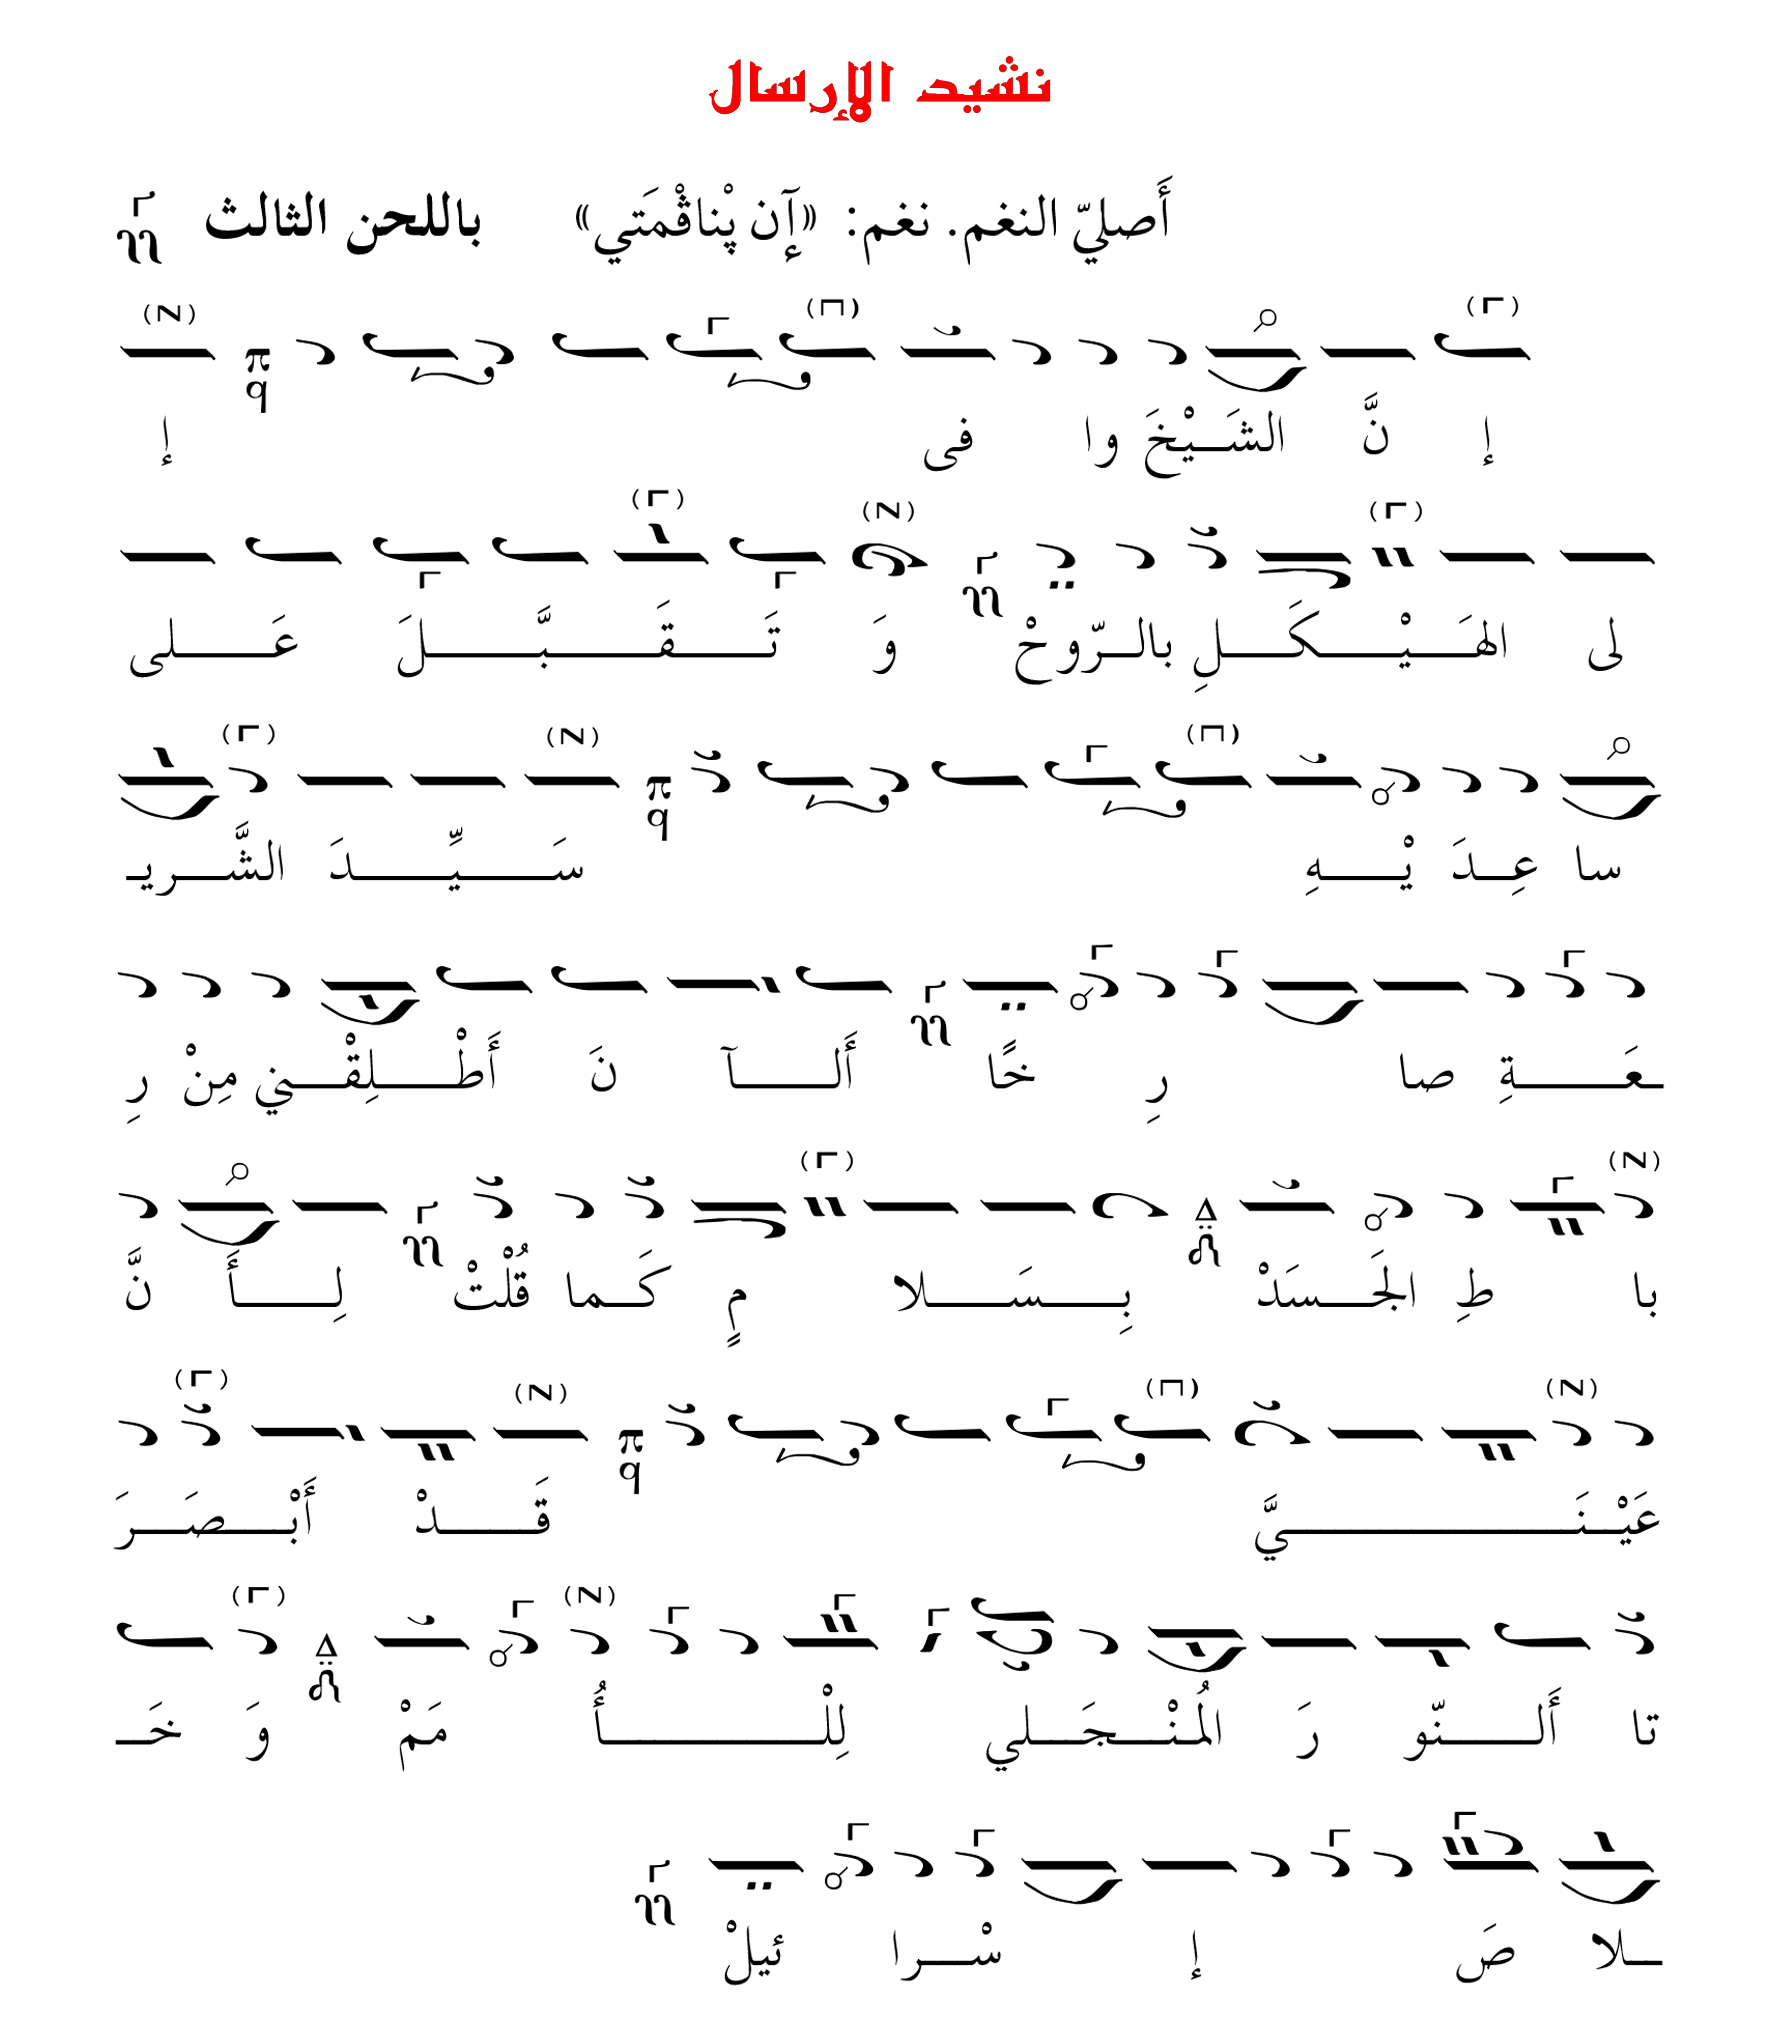 نشيد الإرسال
باللحن الثالث «إآن پْناڤْمَتي» أَصليّ النغم. نغم:
إ نَّ الشَـيْخَ وا فى إ
لى الهَـيْـكَـلِ بالـرّوحْ وَ تَـقَـبَّـلَ عَـلى
سا عِـدَ يْـهِ سَـيِّـدَ الشَّـريـ
ـعَـةِ صا رِ خًا أَلـآ نَ أَطْـلِقْـني مِنْ رِ
با طِ الجَـسَدْ بِـسَـلا مٍ كَـما قُلْتْ لِـأَ نَّ
عَيْـنَـيَّ قَـدْ أَبْـصَـرَ
تا أَلـنّو رَ المُـنْـجَـلي لِلْـأُ مَمْ وَ خَـ
ـلا صَ إ سْـرا ئيلْ